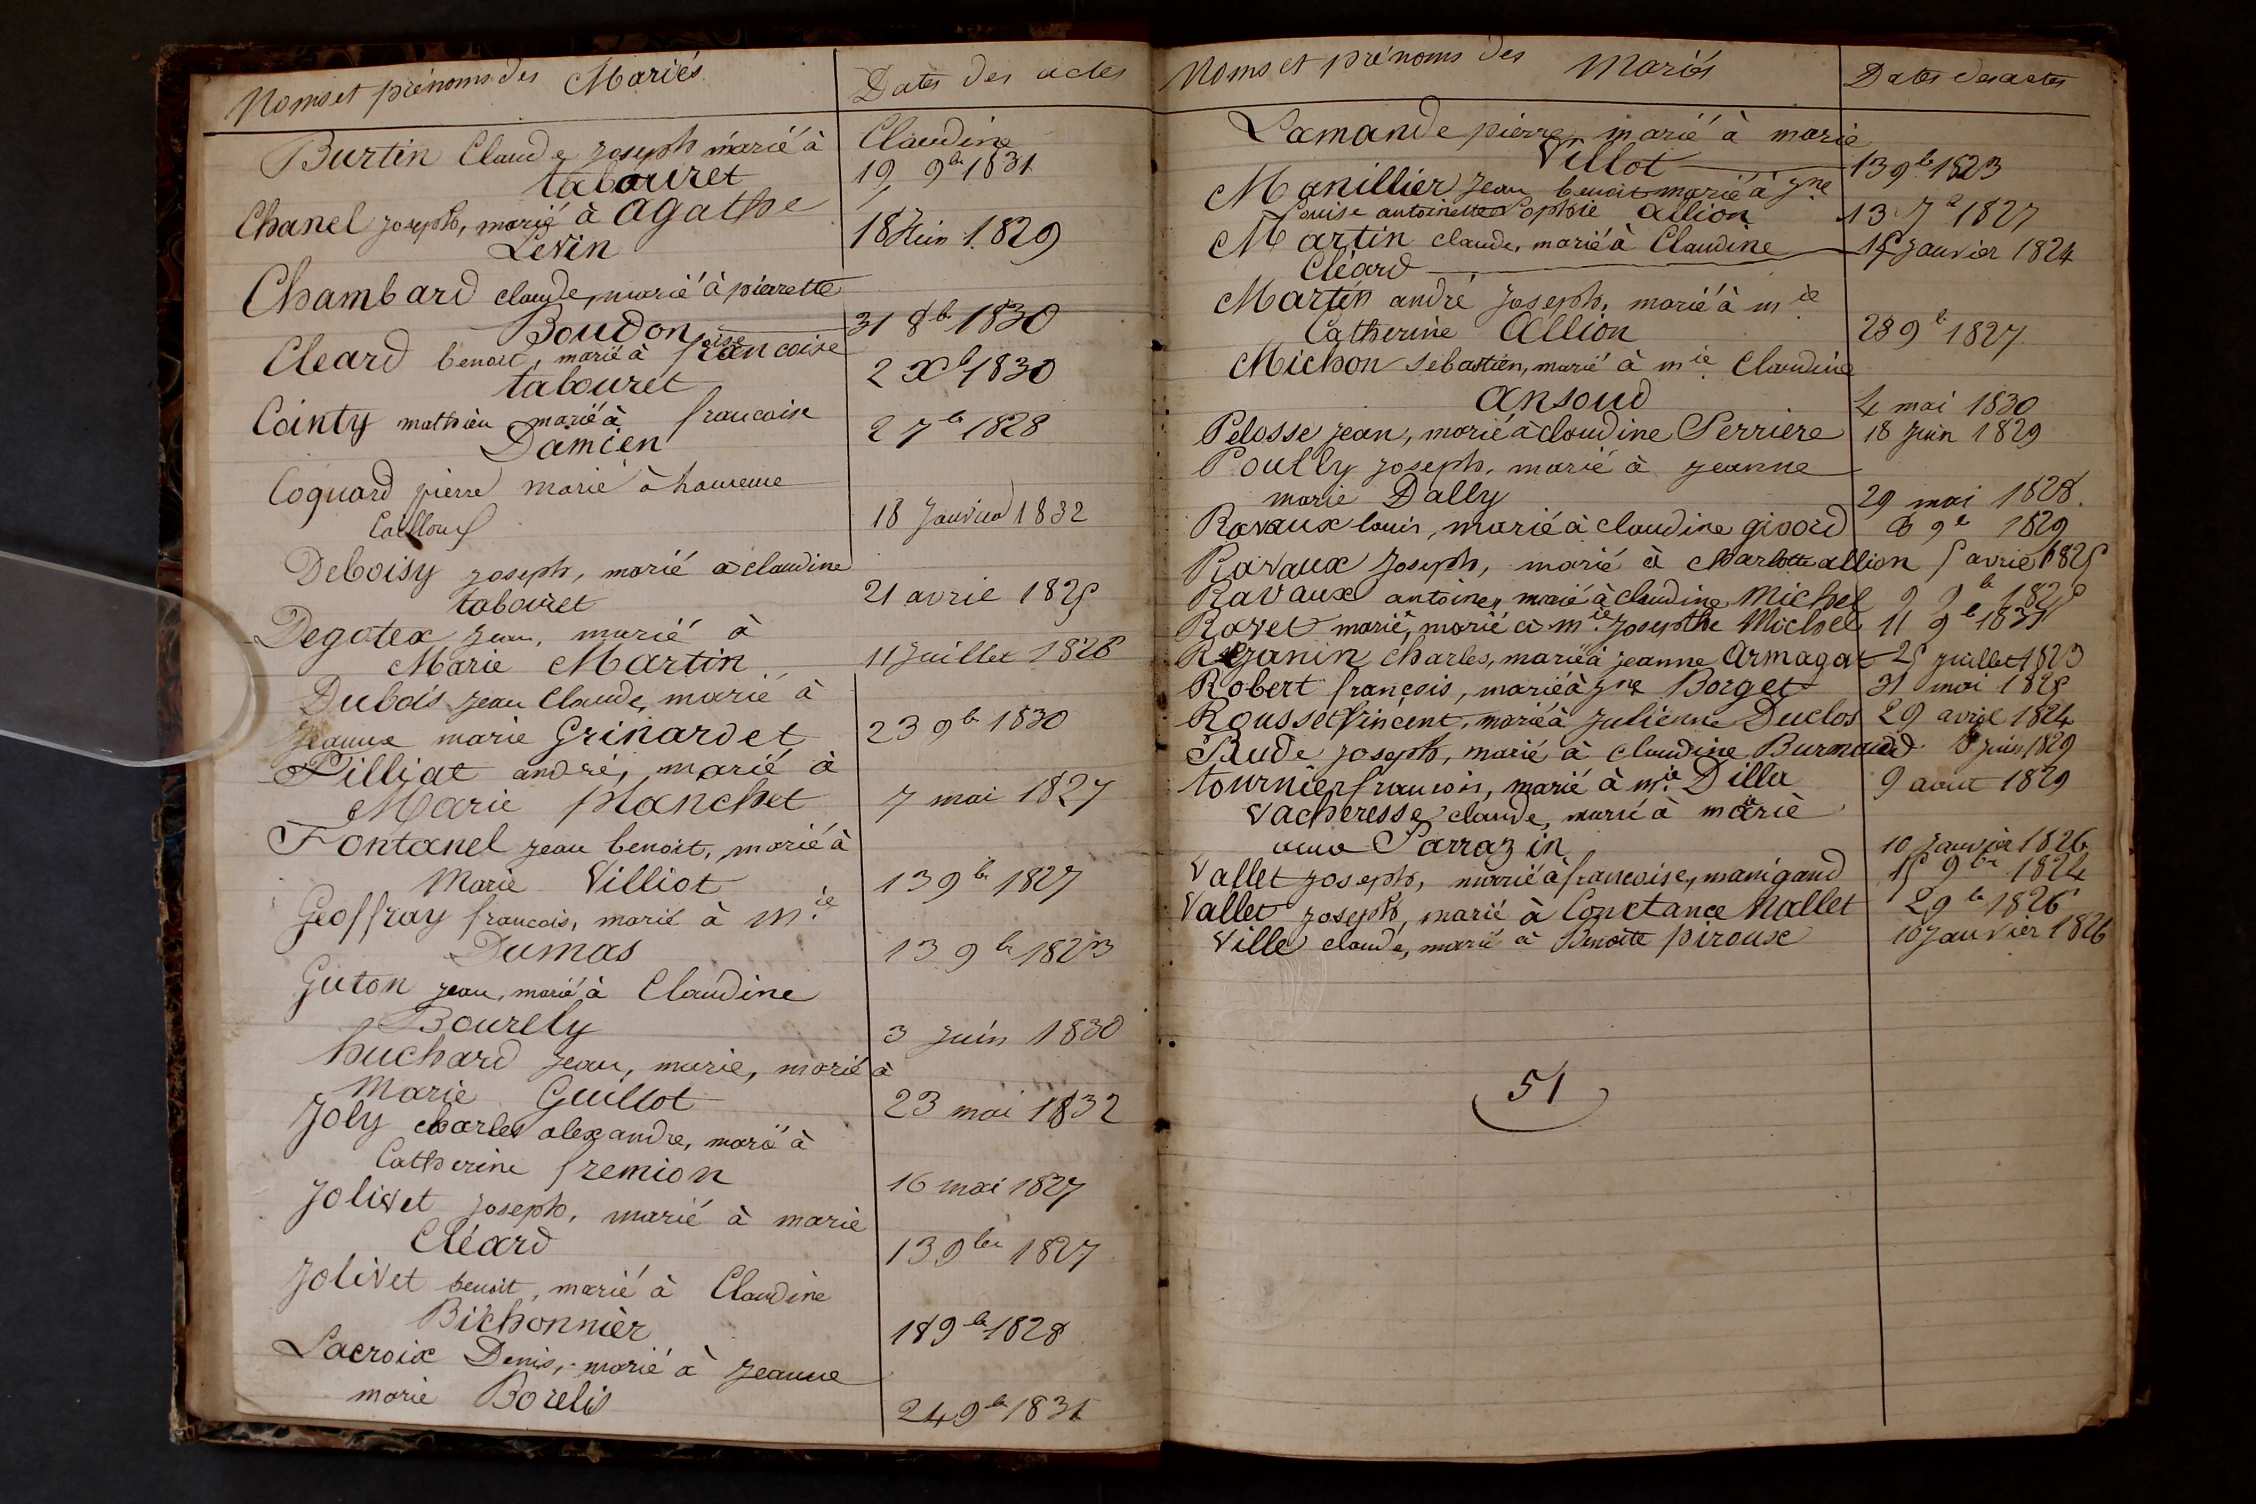 Noms et prénoms des Mariés
Dates des actes
Burtin Claude joseph marié à Claudine
tabouret 19 9b 1831
Chanel joseph, marié à agathe
Levin 18 Juin 1829
Chambard claude, marié à pierrette
Boudon 31 8b 1830
Cleard benoit, marié à francoise
tabouret 2 Xb 1830
Cointy mathieu marié à francoise
Damien 2 7b 1828
Coquard pierre marié à
18 Janvier 1832
Deboisy joseph, marié à claudine
tabouret 21 avril 1825
Degotex jean, marié à
Marie Martin 11 Juillet 1826
Dubois jean Claude, marié à
jeanne marie Grinardet 23 9b 1830
Pilliat andré, marié à
Marie planchet 7 mai 1827
Fontanel jean benoit, marié à
Marie Villiot 13 9b 1827
Geoffray francois, marié à mie
Dumas 13 9b 1823
Guton jean, marié à Claudine
Bourely 3 juin 1830
huchard jean, marie, marié à
Marie Guillot 23 mai 1832
Joly charles alexandre, marié à
Catherine fremion 16 mai 1827
Jolivet joseph, marié à marie
Cléard 13 9br 1827
Jolivet benoit, marié à Claudine
Bichonnier 18 9b 1828
Lacroix Denis, marié à jeanne
marie Borelis 24 9b 1831
Noms et prénoms des Mariés
Dates des actes
Lamande pierre marié à marie
Villot 13 9b 1823
Manillier jean benoit marié à jne
Louise antoinette Sophie allion 13 7b 1827
Martin claude, marié à Claudine 15 Janvier 1824
Cléard
Martin andré joseph, marié à mie
Catherine Allion 28 9b 1827
Michon sebastien, marié à mie Claudine
ansoud 4 mai 1830
Pelosse jean, marié à claudine Perriere 18 juin 1829
Poully joseph, marié à jeanne
marie Dally 29 mai 1828
Ravaux louis, marié à claudine givord 9b 1829
Ravaux joseph, marié à charlotte allion 5 avril 1825
Ravaux antoine, marié à claudine Michel 9 9b 1828
Ravet marie, marié à mie josephe Michel 11 9b 1831
Rejanin charles, marié à jeanne Armagat 25 juillet 1823
Robert françois, marié à jne Borget 31 mai 1828
Rousset Vincent, marié à julienne Duclos 29 avril 1824
Rude joseph, marié à claudine Burnaudd 8 juin 1829
tournier francois, marié à mie Dilla 9 aout 1829
Vacheresse claude, marié à marie
anne Sarrazin 10 janvier 1826
Vallet joseph, marié à francoise, manigand 15 9br 1824
Vallet joseph, marié à Conctance Nallet 29b 1826
Ville claude, marié à Benoite piroux 10 janvier 1826
51